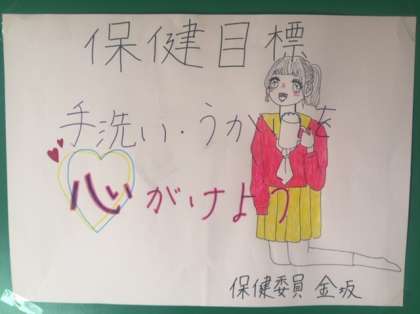 保健目標
手洗い・うがいを
心がけよう
保健委員 金坂